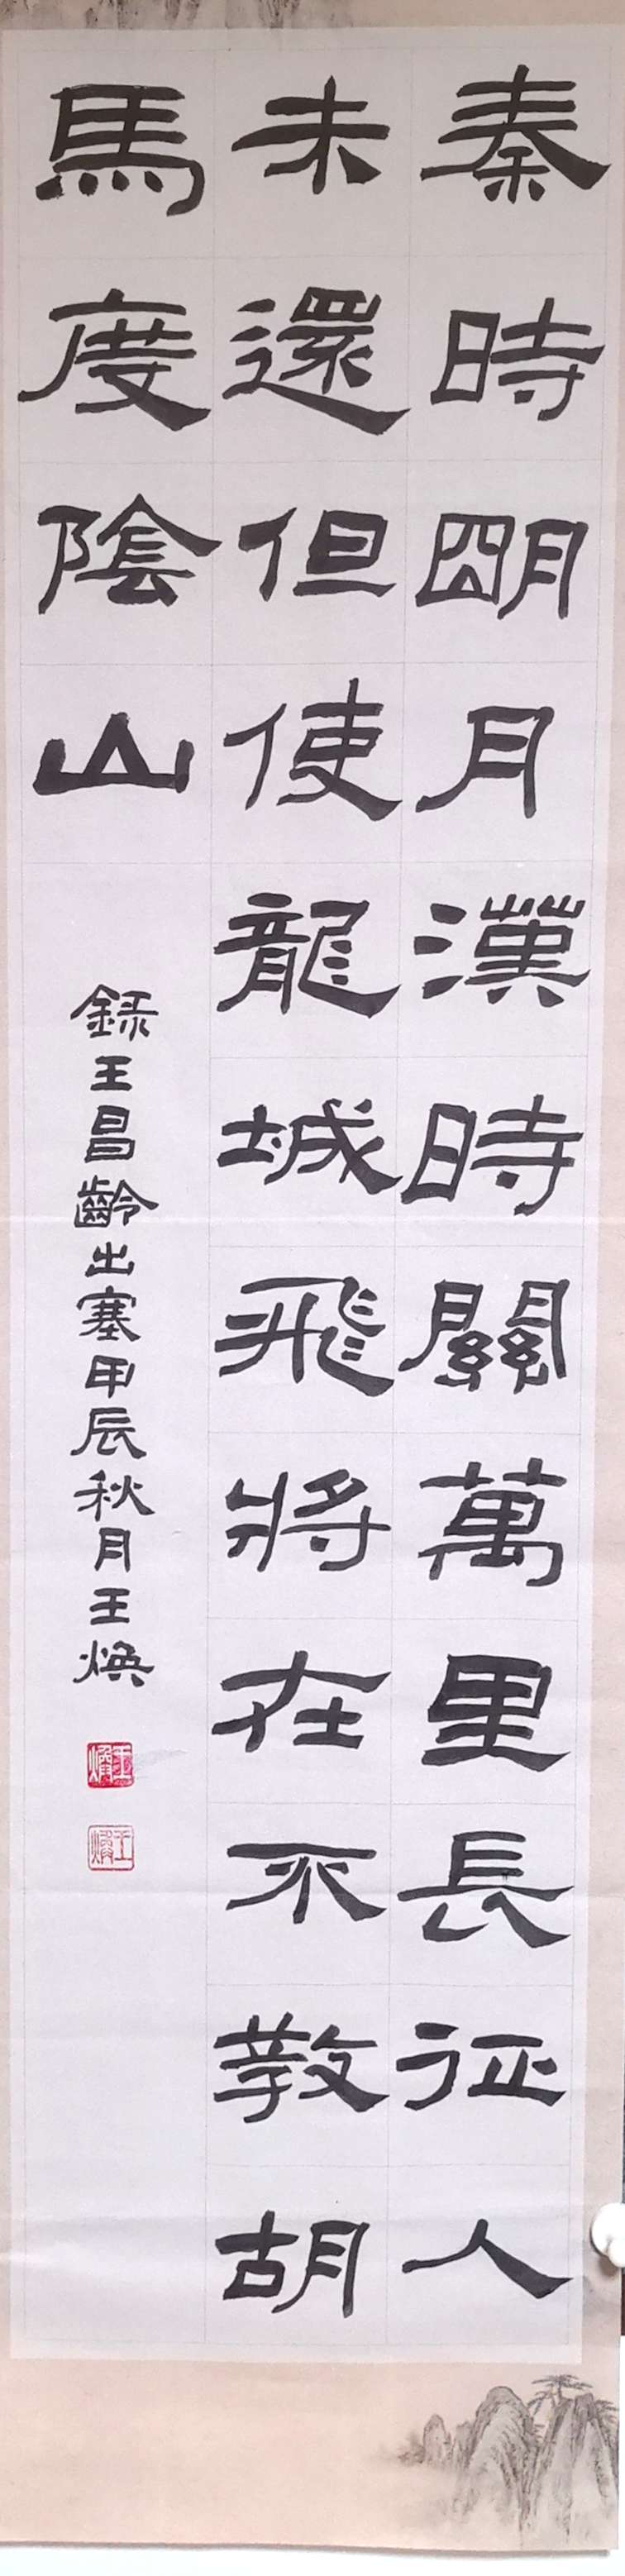 秦時朙月漢時關萬里長征人
未還但使龍城飛將在不教胡
馬度陰山
録王昌齡出塞甲辰秋月王焕
王焕
王焕